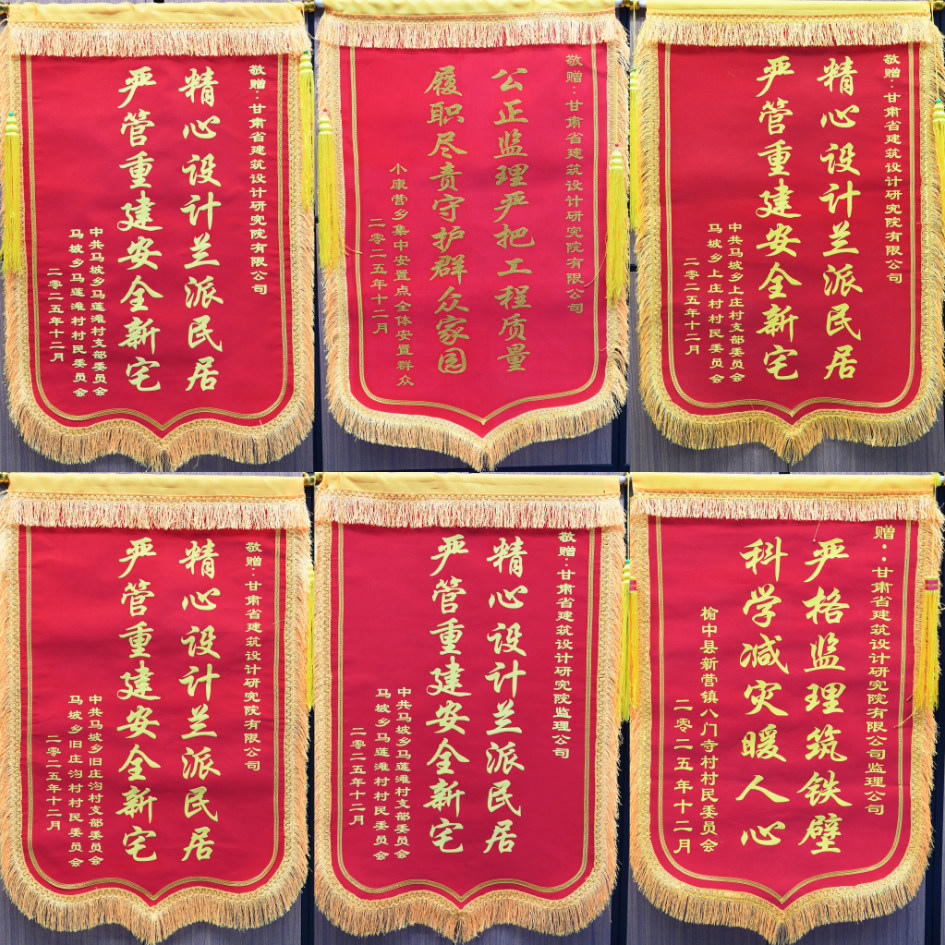 敬赠：甘肃省建筑设计研究院有限公司
精心设计兰派民居
严管重建安全新宅
中共马坡乡马莲滩村支部委员会
马坡乡马莲滩村村民委员会
二零二五年十二月
敬赠：甘肃省建筑设计研究院有限公司
公正监理严把工程质量
履职尽责守护群众家园
小康营乡集中安置点全体安置群众
二零二五年十二月
敬赠：甘肃省建筑设计研究院有限公司
精心设计兰派民居
严管重建安全新宅
中共马坡乡上庄村支部委员会
马坡乡上庄村村民委员会
二零二五年十二月
敬赠：甘肃省建筑设计研究院有限公司
精心设计兰派民居
严管重建安全新宅
中共马坡乡旧庄沟村支部委员会
马坡乡旧庄沟村村民委员会
二零二五年十二月
敬赠：甘肃省建筑设计研究院监理公司
精心设计兰派民居
严管重建安全新宅
中共马坡乡马莲滩村支部委员会
马坡乡马莲滩村村民委员会
二零二五年十二月
赠：甘肃省建筑设计研究院有限公司监理公司
严格监理筑铁壁
科学减灾暖人心
榆中县新营镇八门寺村村民委员会
二零二五年十二月